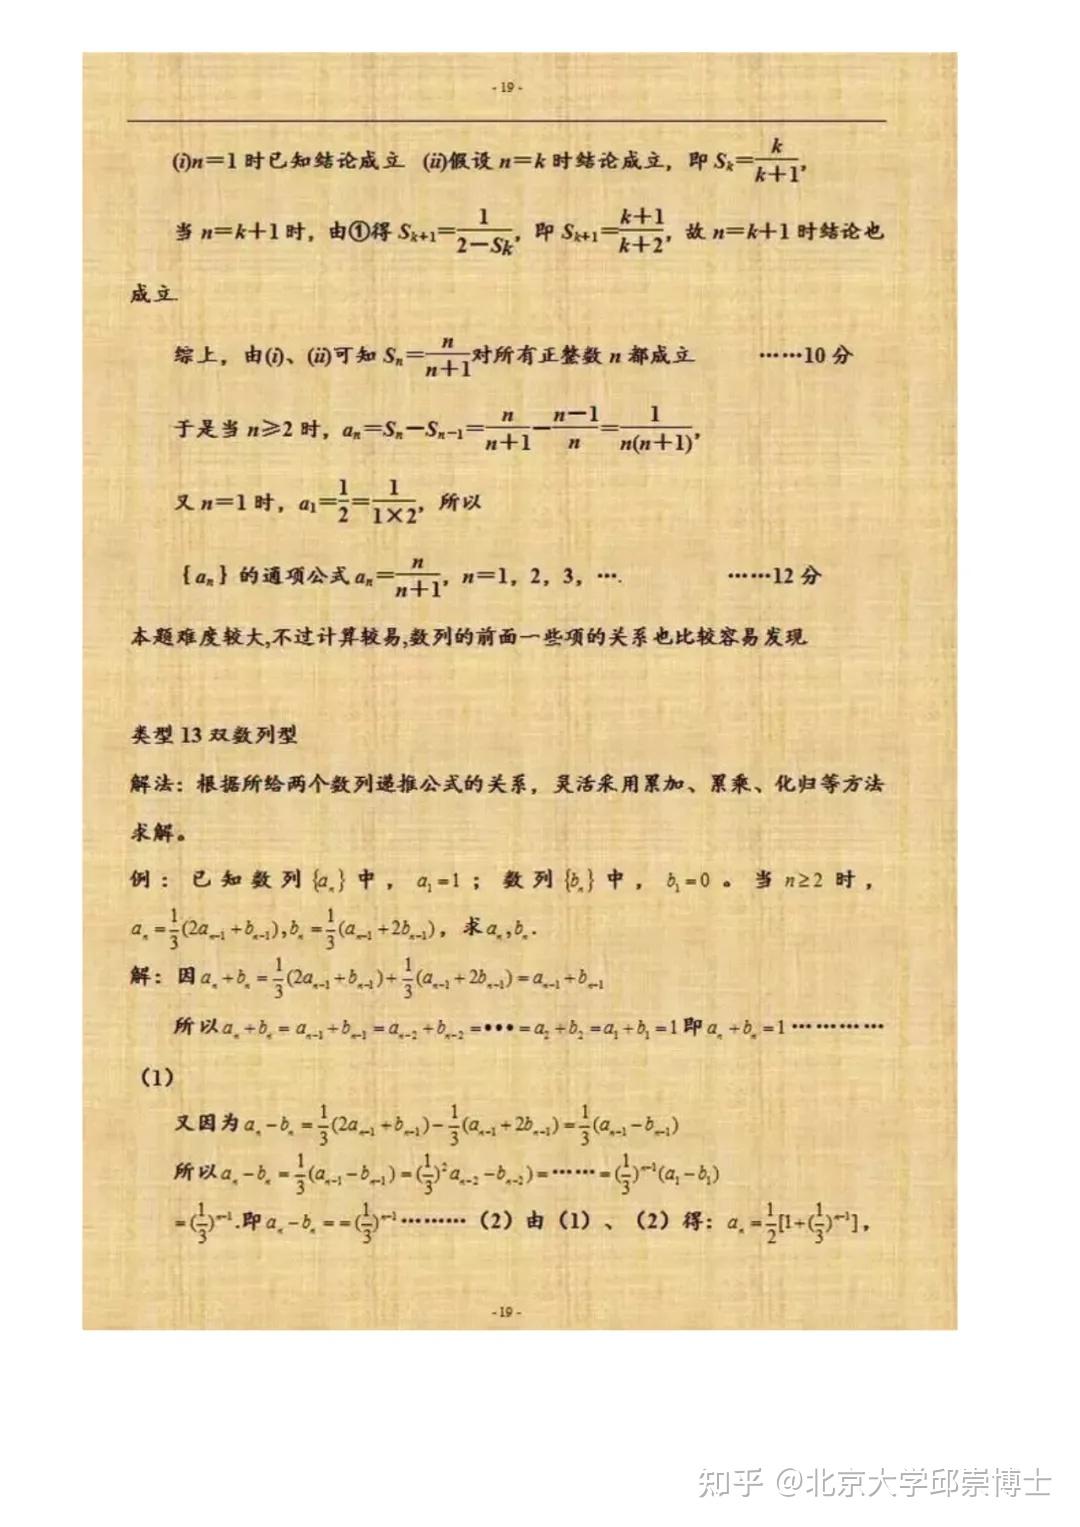 - 19 -
(i)n=1 时已知结论成立 (ii)假设 n=k 时结论成立，即 Sₖ=k/(k+1),
当 n=k+1 时，由①得 Sₖ₊₁=1/(2-Sₖ)，即 Sₖ₊₁=(k+1)/(k+2)，故 n=k+1 时结论也
成立.
综上，由(i)、(ii)可知 Sₙ=n/(n+1)对所有正整数 n 都成立 ……10 分
于是当 n≥2 时，aₙ=Sₙ-Sₙ₋₁=n/(n+1)-(n-1)/n=1/(n(n+1)),
又 n=1 时，a₁=1/2=1/(1×2)，所以
{aₙ}的通项公式 aₙ=n/(n+1)，n=1，2，3，…. ……12 分
本题难度较大,不过计算较易,数列的前面一些项的关系也比较容易发现
类型 13 双数列型
解法：根据所给两个数列递推公式的关系，灵活采用累加、累乘、化归等方法
求解。
例：已知数列{aₙ}中，a₁=1；数列{bₙ}中，b₁=0。当 n≥2 时，
aₙ=1/3(2aₙ₋₁+bₙ₋₁),bₙ=1/3(aₙ₋₁+2bₙ₋₁)，求aₙ,bₙ.
解：因aₙ+bₙ=1/3(2aₙ₋₁+bₙ₋₁)+1/3(aₙ₋₁+2bₙ₋₁)=aₙ₋₁+bₙ₋₁
所以aₙ+bₙ=aₙ₋₁+bₙ₋₁=aₙ₋₂+bₙ₋₂=•••=a₂+b₂=a₁+b₁=1即aₙ+bₙ=1…………
（1）
又因为aₙ-bₙ=1/3(2aₙ₋₁+bₙ₋₁)-1/3(aₙ₋₁+2bₙ₋₁)=1/3(aₙ₋₁-bₙ₋₁)
所以aₙ-bₙ=1/3(aₙ₋₁-bₙ₋₁)=(1/3)²aₙ₋₂-bₙ₋₂)=……=(1/3)ⁿ⁻¹(a₁-b₁)
=(1/3)ⁿ⁻¹.即aₙ-bₙ==(1/3)ⁿ⁻¹………（2）由（1）、（2）得：aₙ=1/2[1+(1/3)ⁿ⁻¹]，
- 19 -
知乎 @北京大学邱崇博士